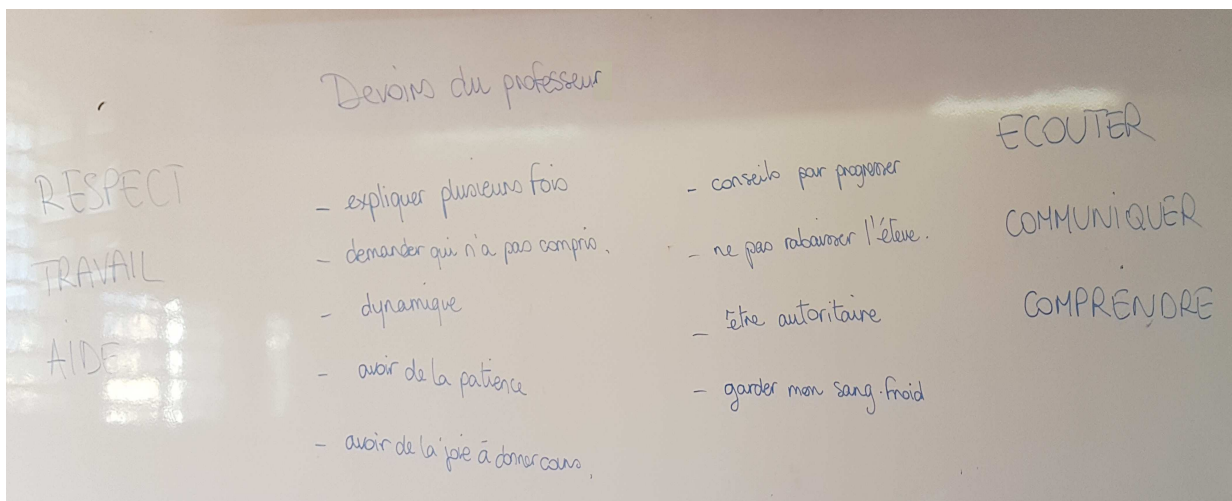 Devoirs du professeur
RESPECT
TRAVAIL
AIDE
- expliquer plusieurs fois
- demander qui n'a pas compris.
- dynamique
- avoir de la patience
- avoir de la joie à donner cours.
- conseils pour progresser
- ne pas rabaisser l'élève.
- être autoritaire
- garder mon sang-froid
ECOUTER
COMMUNIQUER
COMPRENDRE